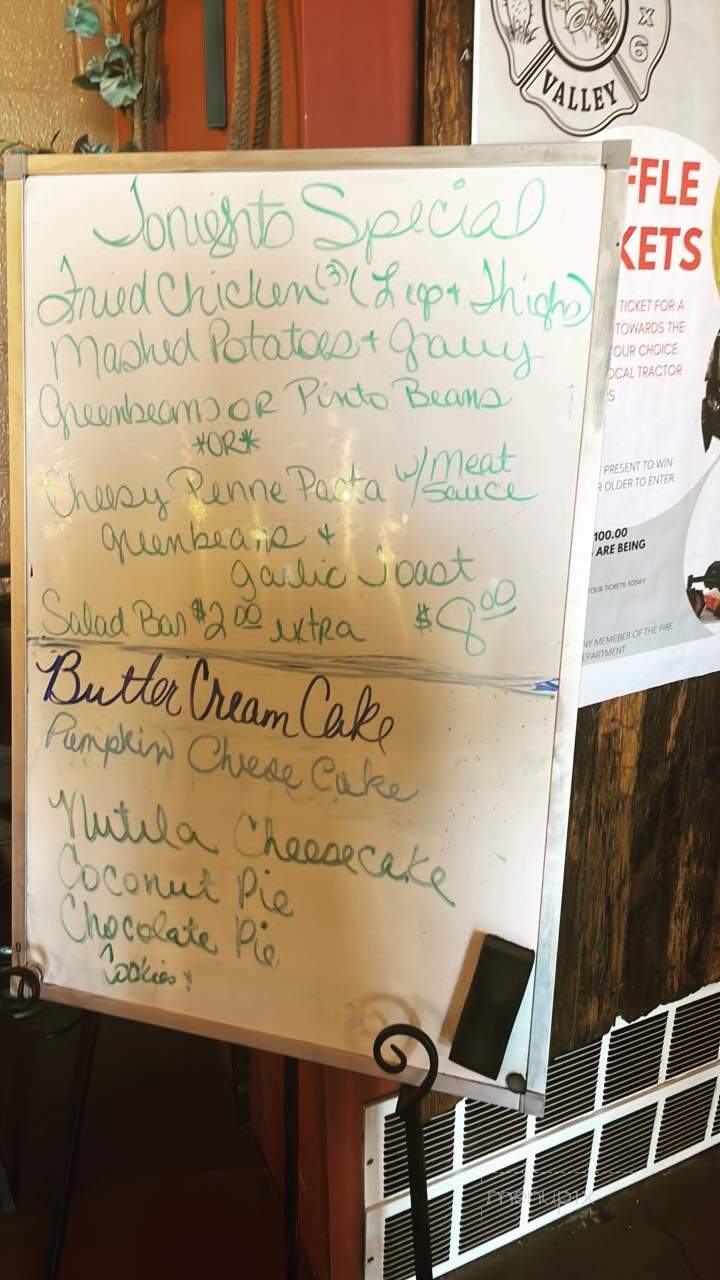 Tonights Special
Fried Chicken (3) (Legs + Thighs)
Mashed Potatoes + Gravy
Greenbeans OR Pinto Beans
*OR*
Cheesy Penne Pasta w/ Meat Sauce
greenbeans +
garlic Toast
Salad Bar $2.00 extra $8.00
Butter Cream Cake
Pumpkin Cheese Cake
Nutula Cheesecake
Coconut Pie
Chocolate Pie
Cookies!
VALLEY
X
6
FFLE
KETS
TICKET FOR A
TOWARDS THE
OUR CHOICE
OCAL TRACTOR
S
PRESENT TO WIN
R OLDER TO ENTER
100.00
ARE BEING
YOUR TICKETS TODAY
NY MEMEBER OF THE FIRE
EPARTMENT
menupix